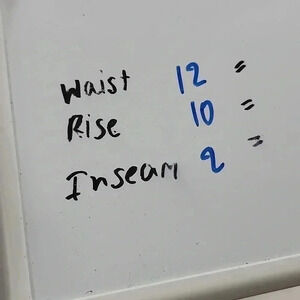 Waist 12 "
Rise 10 "
Inseam 2 "